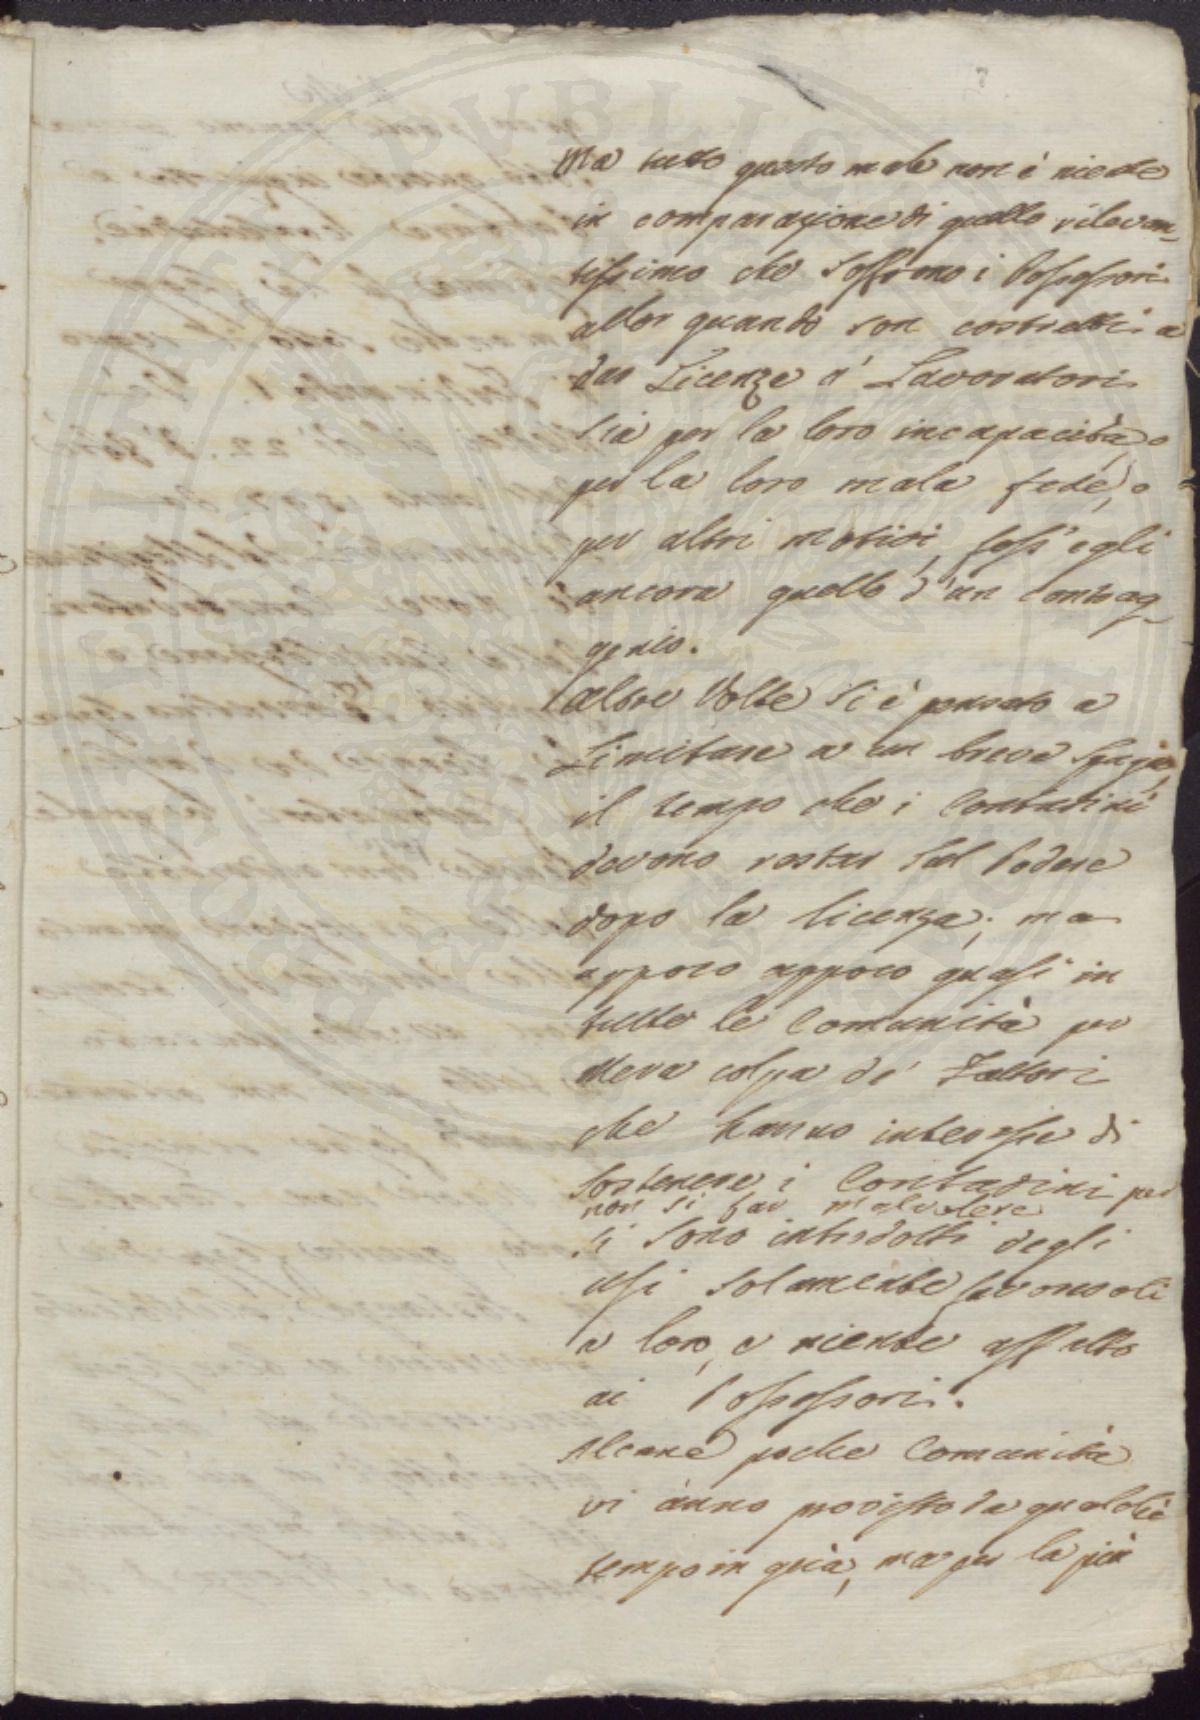 8
Ma tutto questo male non è niente
in comparazione di quello rilevan=
tissimo che soffrono i Possessori
allor quando son costretti a
dar Licenze a' Lavoratori
sia per la loro incapacità, o
per la loro mala fede, o
per altri motivi, foss' egli
ancora quello d'un contag=
genio.
Altre Volte si è pensato a
Limitare a un breve spazio,
il tempo che i Contadini
devono restar sul Podere
dopo la licenza; ma
appoco appoco quasi in
tutte le Comunità per
Mera colpa de' Fattori
che hanno interesse di
sostenere i Contadini per
non si far malvolere
si sono introdotti degli
usi solamente favorevoli
a loro, e niente affatto
ai Possessori.
Alcune poche Comunità
vi ànno provisto da qualche
tempo in quà, ma per la più